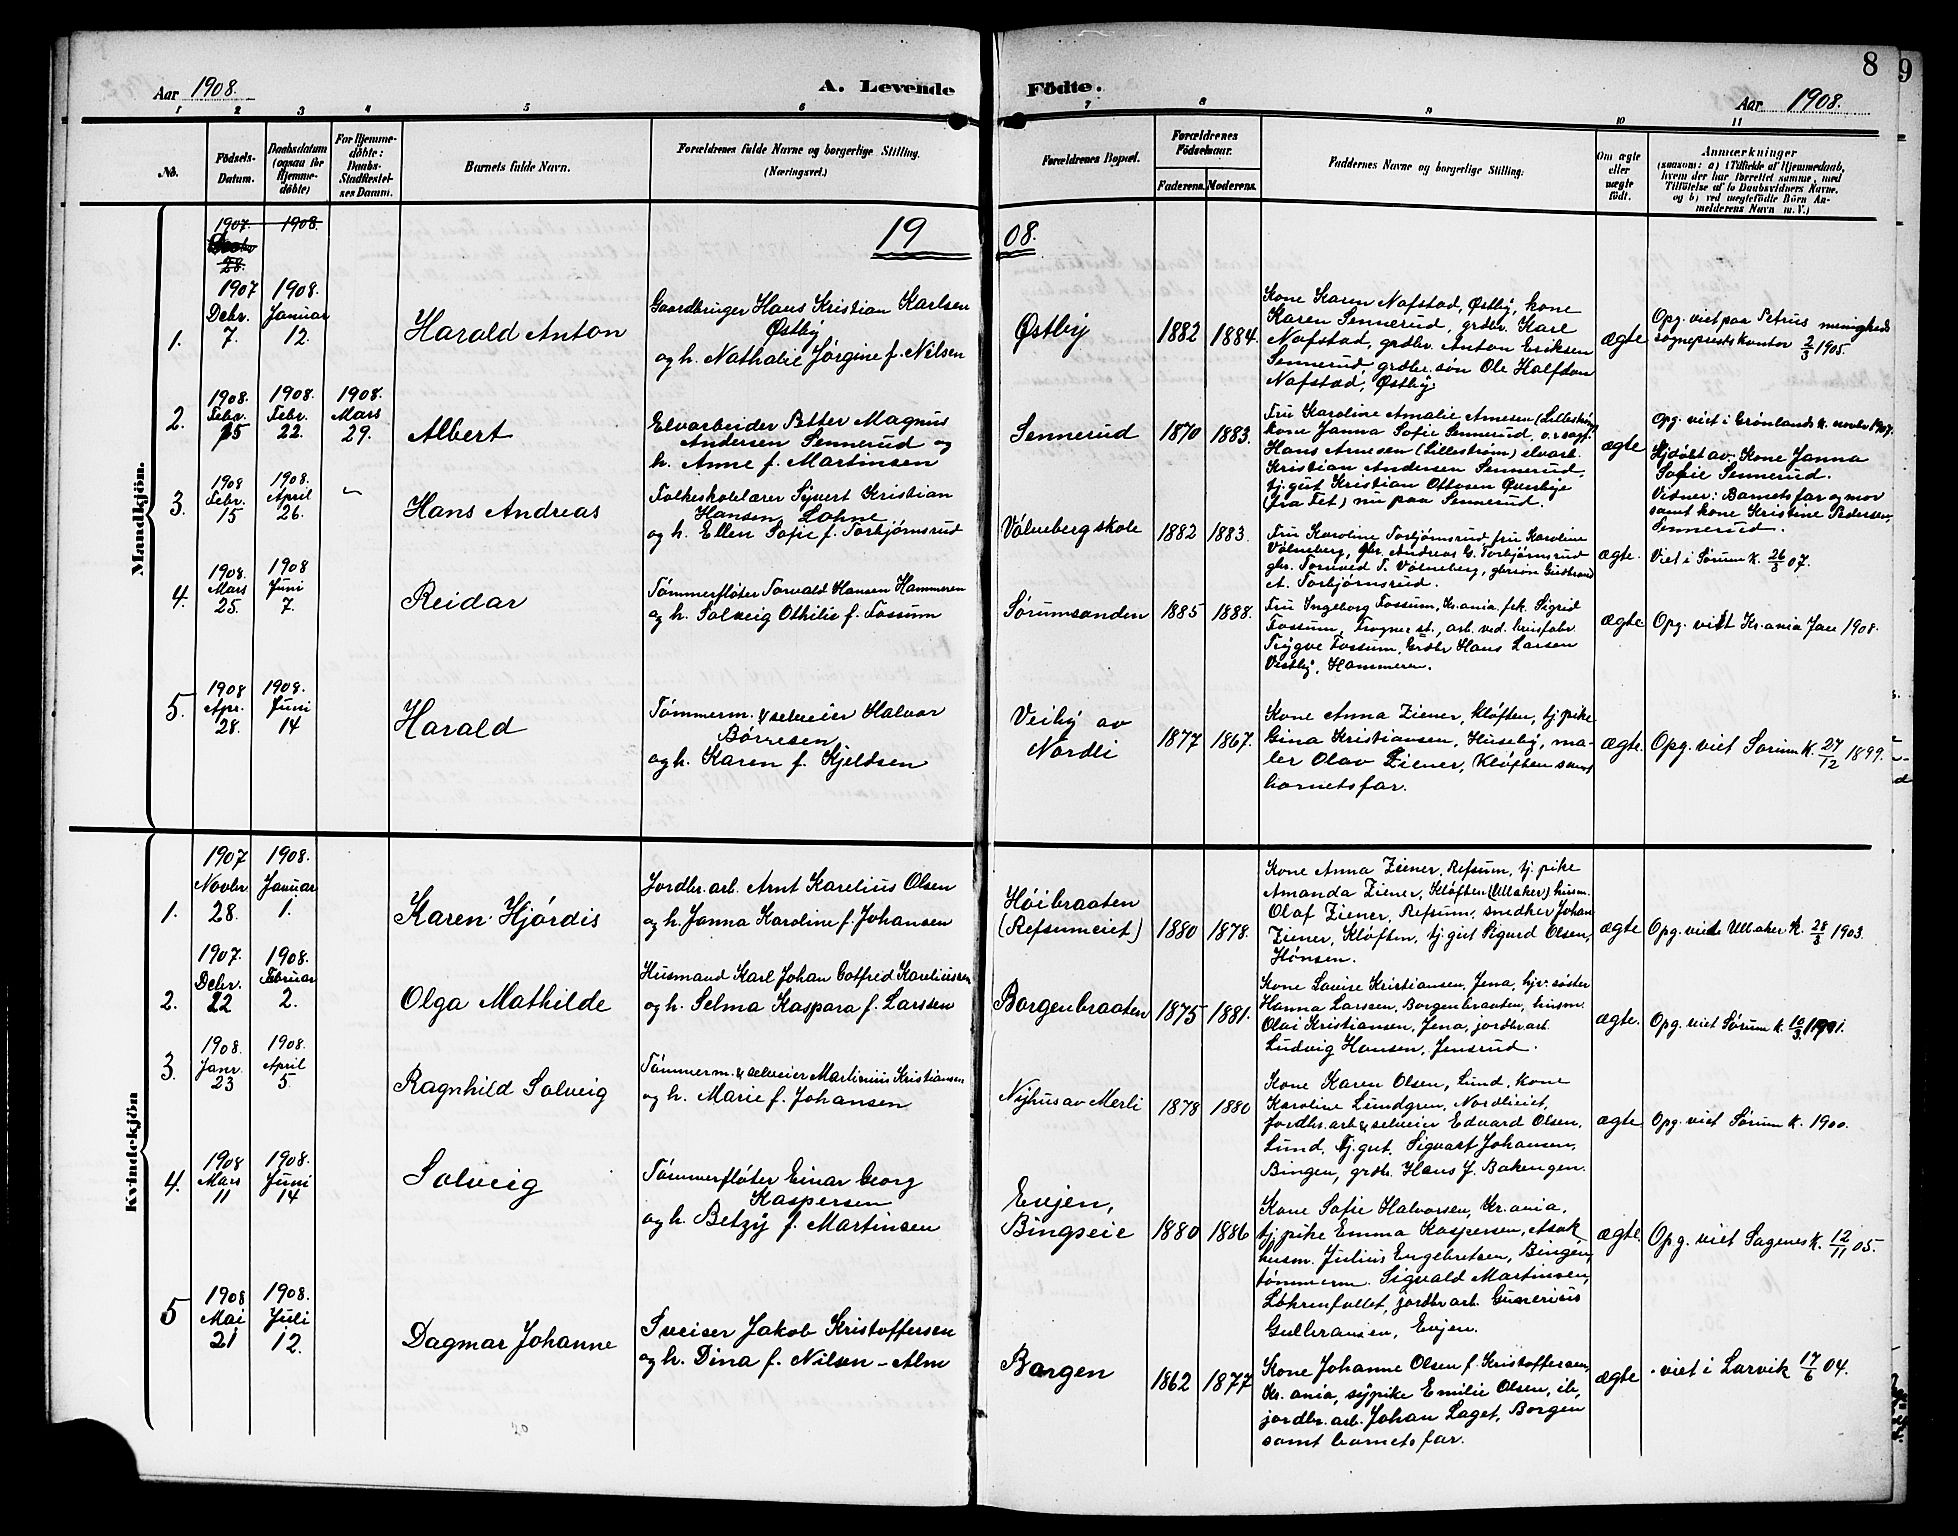 8
9
Aar 1908.
A. Levende
Födte.
Aar 1908.
1 2 3 4 5 6 7 8 9 10 11
No.
Födsels-
Datum.
Daabsdatum
(ogsaa for
Hjemme-
döbte)
For Hjemme-
döbte:
Daabs-
Stadfæstel-
ses Datum.
Barnets fulde Navn.
Forældrenes fulde Navne og borgerlige Stilling.
(Næringsvei.)
Forældrenes Bopæl.
Forældrenes
Födselsaar.
Faderens. Moderens.
Faddernes Navne og borgerlige Stilling.
Om ægte
eller
uægte
födt.
Anmærkninger
(saasom: a) i Tilfælde af Hjemmedaab,
hvem der har forrettet samme, med
Tilföielse af to Daabsvidners Navne,
og b) ved uægtefödte Börn An-
melderens Navn m. V.)
Mandkjön.
1907. 1908.
28.
19
08.
1.
1907
Debr.
7.
1908.
Januar
12.
Harald Anton
Gaardbruger Hans Kristian Karlsen
Østby
og h. Nathalie Jørgine f. Nilsen
Østby
1882
1884.
Kone Karen Nafstad, Østby, kone
Karen Sennerud, grdbr. Karl
Nafstad, grdbr. Anton Eriksen
Sennerud grdbr. søn Ole Halfdan
Nafstad, Østby.
ægte
Opg. viet paa Petrus menigheds
sogneprestkontor 2/3 1905.
2.
1908.
Febr.
15
1908.
Febr.
22.
1908.
Mars
29.
Albert
Elvarbeider Petter Magnus
Andersen Sennerud og
h. Anne f. Martinsen
Sennerud
1870
1883.
Fru Karoline Amalie Arnesen (Lillestrøm)
kone Janna Sofie Sennerud,
Hans Arnesen (Lillestrøm) elvarb.
Kristian Andersen Sennerud,
tj. gut Kristian Ottosen
(fra Fet) nu paa Sennerud.
ægte
Opg. viet i Grønlands k. novbr 1907.
Hjdøbt av. Kone Janna
Sofie Sennerud.
Vidner: Barnets far og mor
samt kone Kristine Pedersen,
Sennerud.
3.
1908
Febr.
15
1908.
April
26.
Hans Andreas
Folkeskolelærer Syvert Kristian
Hansen Lohne
og h. Ellen Sofie f. Torbjørnsrud
Vølneberg skole
1882
1883.
Fru Karoline Torbjørnsrud fru Karoline
Vølneberg, gbr. Andreas G. Torbjørnsrud
gbr. Tornved T. Vølneberg, gbrsøn Gudbrand
A. Torbjørnsrud.
ægte.
Viet i Sørum k. 26/8 07.
4.
1908.
Mars
25.
1908
Juni
7.
Reidar
Tømmerfløter Torvald Hansen Hammeren
og h. Solveig Othilie f. Fossum
Sørumsanden
1885
1888.
Fru Ingeborg Fossum, Kr.ania, frk. Sigrid
Fossum, Frogner st., arb. ved
Trygve Fossum, Grdbr Hans Larsen
Vestby, Hammeren.
ægte
Opg. viet Kr.ania Jan 1908.
5.
1908
Apr.
28.
1908.
Juni
14
Harald
Tømmerm. & selveier Halvor
Børresen
og h. Karen f. Kjeldsen
Veiby av
Nordli
1877
1867.
Kone Anna Ziener, Kløften, tj.pike
Gina Kristiansen, Huseby, ma-
ler Olav Ziener, Kløften samt
barnets far.
ægte.
Opg. viet Sørum k. 27/12 1899.
Kvindekjön
1.
1907
Novbr
28.
1908.
Januar
1.
Karen Hjørdis
Jordbr. arb. Arnt Karelius Olsen
og h. Janna Karoline f. Johansen
Høibraaten
(Refsumeiet)
1880
1878.
Kone Anna Ziener, Refsum, tj. pike
Amanda Ziener, Kløften (Ullaker) husm.
Olaf Ziener, Refsum, snedker Johan
Ziener, Kløften, tj. gut Sigurd Olsen,
Hønsen.
ægte
Opg. viet Ullaker k. 28/3 1903.
2.
1907.
Debr.
22
1908.
Februar
2.
Olga Mathilde
Husmand Karl Johan Gotfred Kareliussen
og h. Selma Kaspara f. Larssen
Borgenbraaten
1875
1881.
Kone Lovise Kristiansen, Jena, hjv. søster
Hanna Larssen, Borgenbraaten, husm.
Olai Kristiansen, Jena, jordbr. arb.
Ludvig Hansen, Jensrud.
ægte.
Opg. viet Sørum k. 10/3 1901.
3.
1908.
Janr.
23
1908.
April
5.
Ragnhild Solveig
Tømmerm. & selveier Martinius Kristiansen
og h. Marie f. Johansen
Nyhus av Merli
1878
1880
Kone Karen Olsen, Lund, kone
Karoline Lundgren, Nordlieiet,
Jordbr. arb & selveier Edvard Olsen,
Lund, tj. gut. Sigvart Johansen,
Bingen, grdbr. Hans J. Bakengen.
ægte
Opg. viet Sørum k. 1900.
4.
1908
Mars
11
1908.
Juni
14
Solveig
Tømmerfløter Einar Georg
Kaspersen
og h. Betzy f. Martinsen
Evjen,
Bingseie
1880
1886
Kone Sofie Halvorsen, Kr.ania,
tj. pike Emma Kaspersen, Asak
husm. Julius Engebretsen, Bingen,
tømmerm. Sigvald Martinsen,
Løkrenfallet, jordbr arb. Gunerius
Gulbransen, Evjen.
ægte.
Opg. viet Sagenes k. 12/11 05.
5
1908
Mai
21
1908.
Juli
12.
Dagmar Johanne
Sveiser Jakob Kristoffersen
og h. Dina f. Nilsen-Alm
Borgen
1862
1877
Kone Johanne Olsen f. Kristoffersen,
Kr.ania, sypike Emilie Olsen, ib.,
jordbr. arb. Johan Laget, Borgen
samt barnets far.
ægte
viet i Larvik 17/6 04.
20